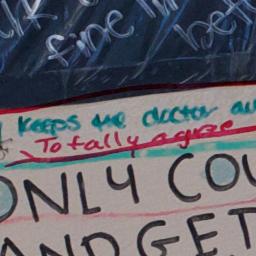 fine
keeps the doctor
Totally agree
ONLY COU
AND GET